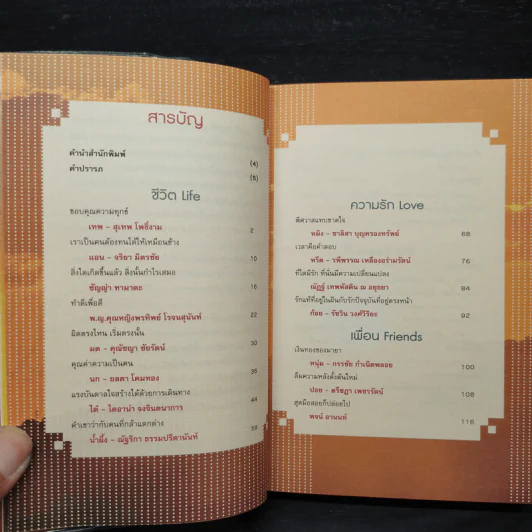 สารบัญ
คำนำสำนักพิมพ์ (4)
คำปรารภ (5)
ชีวิต Life
ขอบคุณความทุกข์
เทพ - สุเทพ โพธิ์งาม 2
เราเป็นคนต้องทนได้ให้เหมือนช้าง
แอน - จริยา มิตรชัย 10
สิ่งใดเกิดขึ้นแล้ว สิ่งนั้นกำไรเสมอ
ชัญญ่า ทามาดะ 16
ทำดีเพื่อดี
พ.ญ.คุณหญิงพรทิพย์ โรจนสุนันท์ 22
ผิดตรงไหน เริ่มตรงนั้น
มด - คุณัชญา ชัยรัตน์ 30
คุณค่าความเป็นคน
นก - อลลา โคมทอง 36
แรงบันดาลใจสร้างได้ด้วยการเดินทาง
ได๋ - ไดอาน่า จงจินตนาการ 44
คำเขาว่ากับคนที่กล้าแตกต่าง
น้ำผึ้ง - ณัฐริกา ธรรมปรีดานันท์
ความรัก Love
หมิง - ชาลิสา บุญครองทรัพย์ 68
เวลาคือคำตอบ
หรีด - รพีพรรณ เหลืองอร่ามรัตน์ 76
ที่ใดมีรัก ที่นั่นมีความเปลี่ยนแปลง
ณัฏฐ์ เทพหัสดิน ณ อยุธยา 84
รักแท้ที่อยู่ในฝันกับรักปัจจุบันที่อยู่ตรงหน้า
ก้อย - รัชวิน วงศ์วิริยะ 92
เพื่อน Friends
เงินทองของมายา
หนุ่ม - กรรชัย กำเนิดพลอย 100
ลืมความหลังตั้งต้นใหม่
ปอย - ตรีชฎา เพชรรัตน์ 108
สุดมือสอยก็ปล่อยไป
พจน์ อานนท์ 116